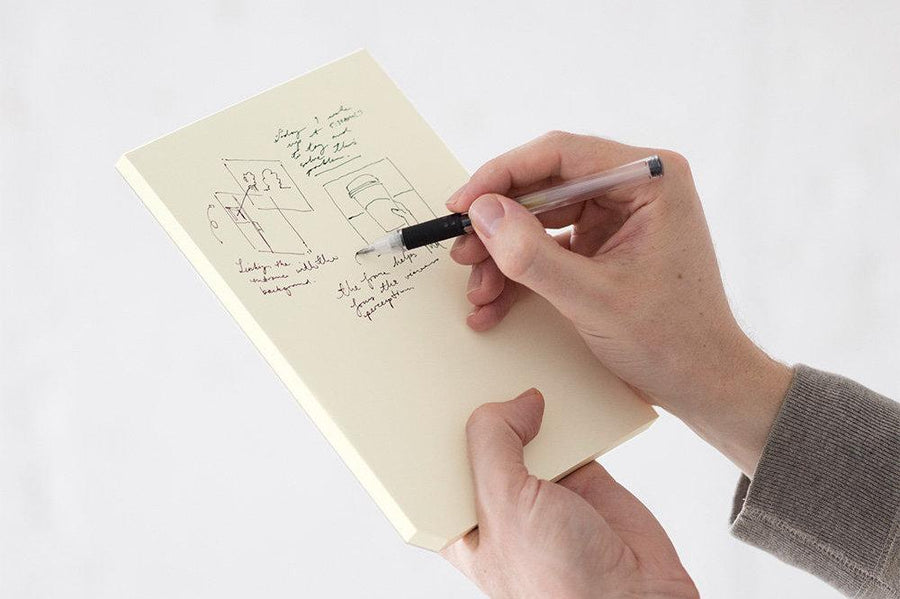 Today I woke
up at
to try and
solve this
problem.
Linking the
with the
background.
the frame helps
focus the viewers
perception.